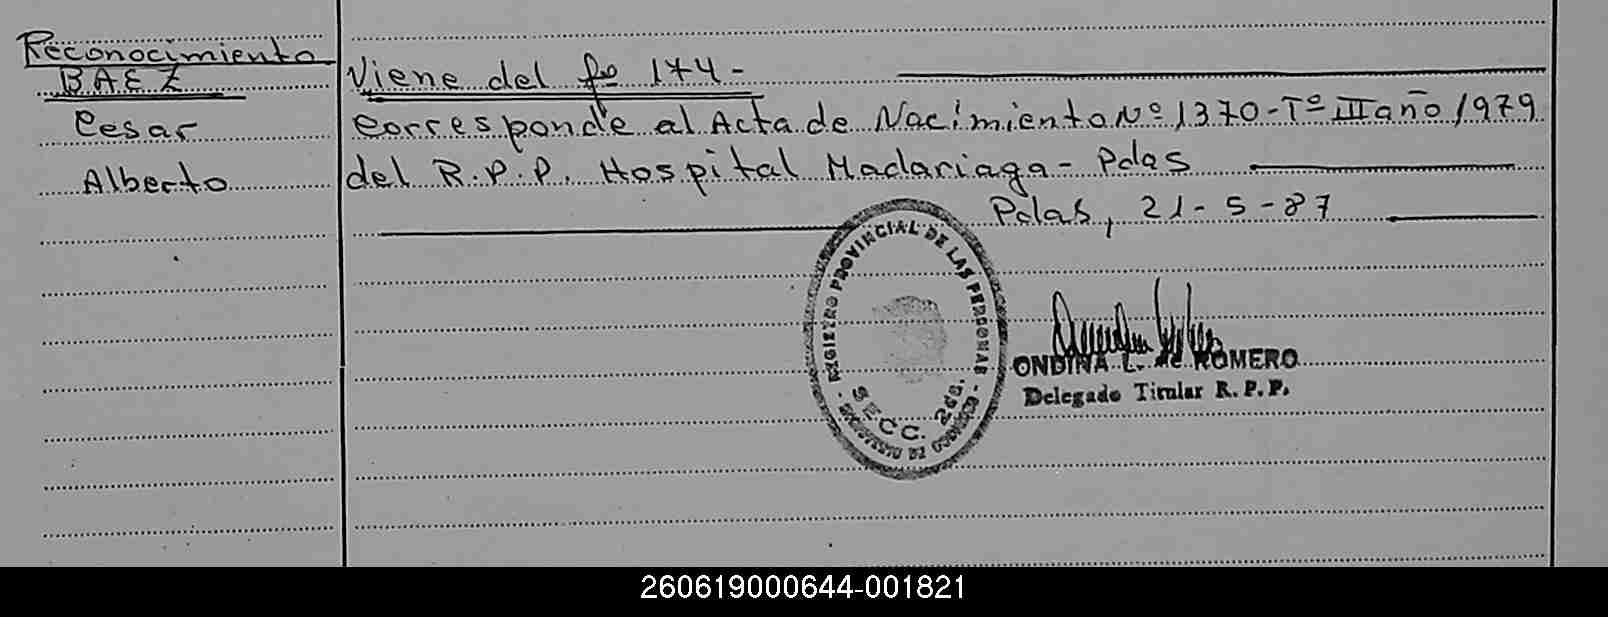 Reconocimiento
BAEZ
Cesar
Alberto
Viene del fº 174-
Corresponde al Acta de Nacimiento Nº 1370-Tº III año 1979
del R.P.P. Hospital Madariaga - Pdas
Pdas, 21-5-87
REGISTRO PROVINCIAL DE LAS PERSONAS
SECC. 2da.
- MINISTERIO DE GOBIERNO -
ONDINA L. de ROMERO
Delegado Titular R.P.P.
260619000644-001821